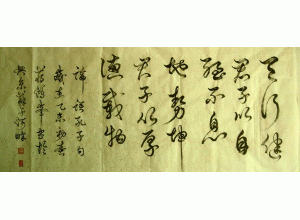 天行健
君子以自
強不息
地勢坤
君子以厚
德載物
論語孔子句
歲在乙未初春